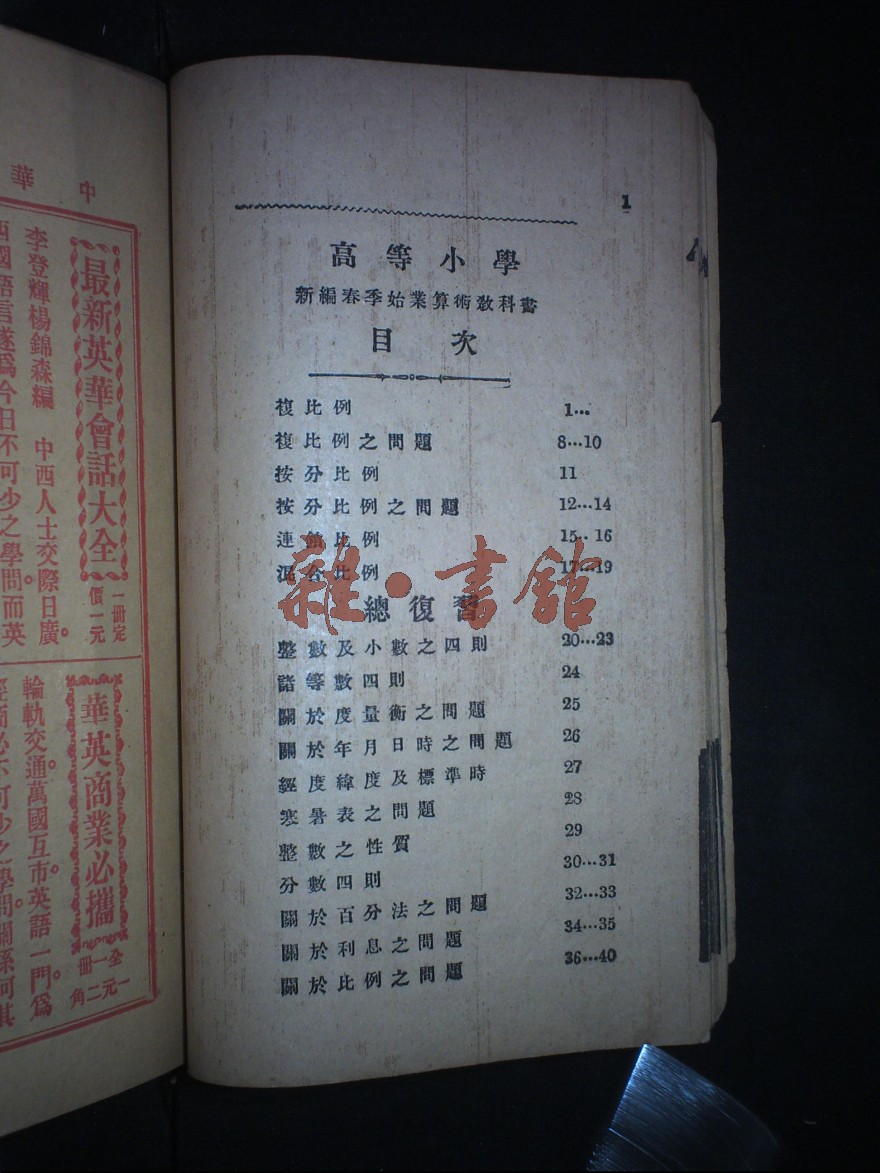 1
高等小學
新編春季始業算術教科書
目次
複比例 1…
複比例之問題 8…10
按分比例 11
按分比例之問題 12…14
連鎖比例 15…16
混合比例 17…19
總復習
整數及小數之四則 20…23
諸等數四則 24
關於度量衡之問題 25
關於年月日時之問題 26
經度緯度及標準時 27
寒暑表之問題 28
整數之性質 29
分數四則 30…31
關於百分法之問題 32…33
關於利息之問題 34…35
關於比例之問題 36…40
雜·書館
中華
最新英華會話大全
一冊定
價一元
李登輝楊錦森編 中西人士交際日廣。
西國語言遂爲今日不可少之學問而英
華英商業必攜
全一冊
一元二角
輪軌交通。萬國互市。英語一門。爲